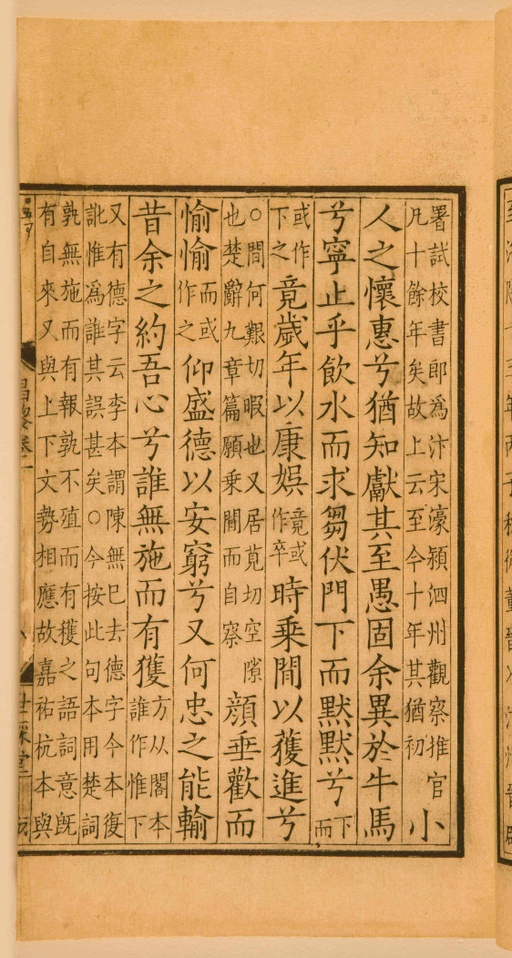 署試校書郎為汴宋濠頴泗州觀察推官
凡十餘年矣故上云至今十年其猶初
小
人之懷惠兮猶知獻其至愚固余異於牛馬
兮寧止乎飲水而求芻伏門下而默默兮下而
或作下之竟歲年以康娛竟或作卒時乘間以獲進兮
○間何艱切暇也又居莧切空隙
也楚辭九章篇願乘間而自察
顔垂歡而
愉愉而或作之仰盛德以安窮兮又何忠之能輸
昔余之約吾心兮誰無施而有獲方从閣本誰作惟下
又有德字云李本謂陳無已去德字今本復
訛惟為誰其誤甚矣○今按此句本用楚詞
孰無施而有報孰不殖而有穫之語詞意旣
有自來又與上下文勢相應故嘉祐杭本與
昌黎卷一
世綵堂